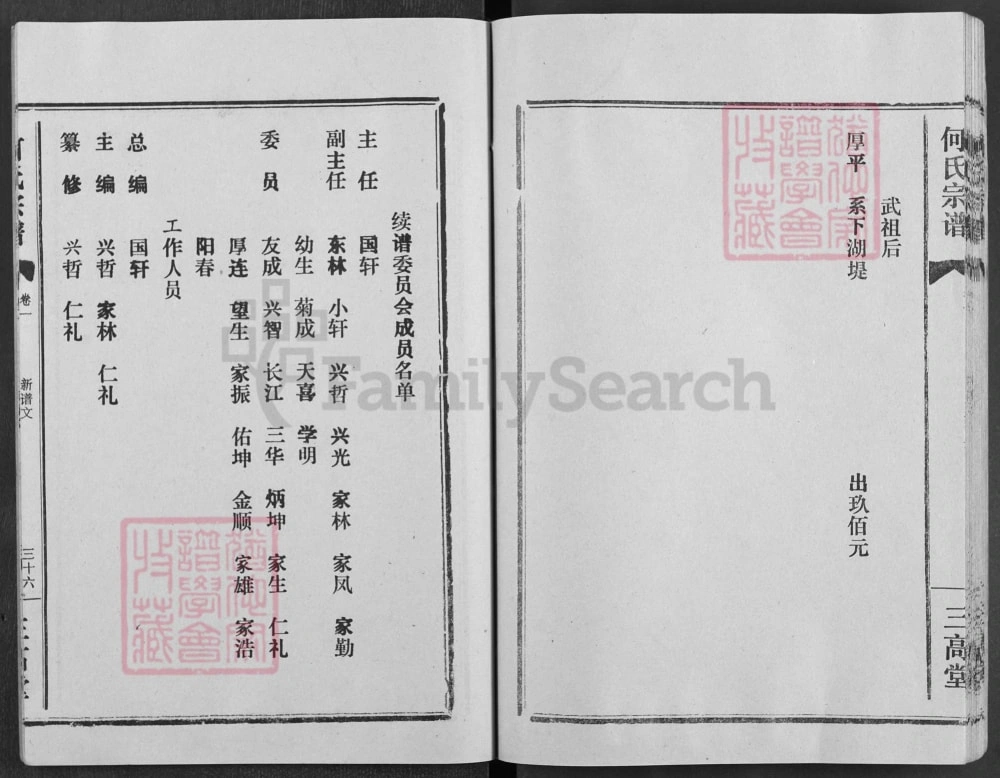 何氏宗谱
三高堂
武祖后
厚平 系下湖堤 出玖佰元
续谱委员会成员名单
主任 国轩
副主任 东林 小轩 兴哲 兴光 家林 家凤 家勤
幼生 菊成 天喜 学明
委员 友成 兴智 长江 三华 炳坤 家生 仁礼
厚连 望生 家振 佑坤 金顺 家雄 家浩
阳春
工作人员
总编 国轩
主编 兴哲 家林 仁礼
纂修 兴哲 仁礼
卷一
新谱文
三十六
FamilySearch